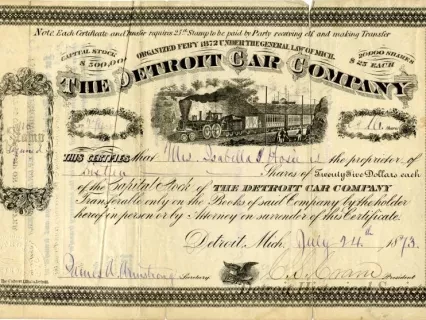 Note. Each Certificate and Transfer requires 25ct Stamp to be paid by Party receiving all and making Transfer
ORGANIZED FEB'Y 1872 UNDER THE GENERAL LAW OF MICH.
CAPITAL STOCK
$ 500,000
20000 SHARES
$ 25 EACH
THE DETROIT CAR COMPANY
THIS CERTIFIES that Mrs. Isabella is the proprietor of
Sixteen Shares of Twenty Five Dollars each
of the Capital Stock of THE DETROIT CAR COMPANY
Transferable only on the Books of said Company by the holder
hereof in person or by Attorney on surrender of this Certificate.
Detroit, Mich. July 24th 1873
James H. Armstrong Secretary
President
Detroit Historical Society